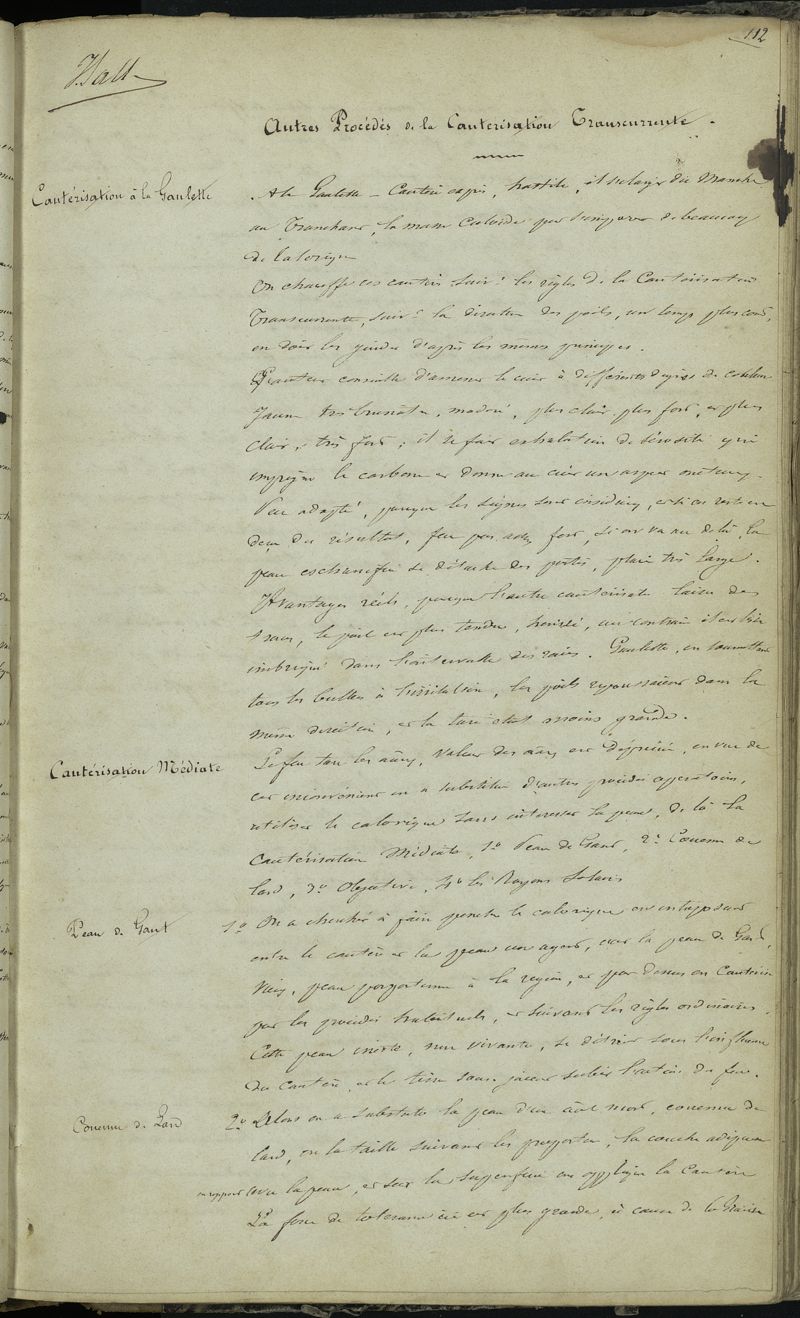 112
Autres Procédés de la Cautérisation Transcurrente.
Cautérisation à la Gaulette
A la Gaulette - Cautère
au Tranchant, la masse de beaucoup
de Calorique
On chauffe ces cautères suivt les règles de la Cautérisation
Transcurrente, suivt la direction des poils, un temps plus court,
on doit les guider d'après les mêmes principes.
L'auteur conseille d'amener le cuir à différents degrés de couleur
Jaune très brunâtre, modéré, plus clair plus fort, et plus
Clair, très fort; il se fait exhalation de sérosité qui
le carbone et donne au cuir un aspect
Peu adopté, parce que les signes sont insidieux, et si on reste en
deça du résultat, feu pas assez fort, si on va au delà, la
peau se détache des parties, plaie très large.
Avantages réels, parce que l'autre cautérisation laisse des
traces, le poil est plus tendre, hérissé, au contraire il est bien
imbriqué dans l'intervalle des raies. Gaulette, en soumettant
tous les bulbes à l'irritation, les poils repoussaient dans la
même direction, et la tare était moins grande.
Cautérisation Médiate
Le feu tare les aux, valeur des aux est dépréciée, en vue de
ces inconvénients on a substitué d'autres procédés opératoires,
utiliser le calorique sans intéresser la peau, de là la
Cautérisation Médiate, 1° Peau de Gant, 2° Couenne de
Lard, 3° Objective, 4° les Rayons Solaires
Peau de Gant
1° On a cherché à faire pénétrer le calorique en interposant
entre le cautère et la peau un agent, avec la peau de Gant,
peau à la région, et par dessus on Cautérise
par les procédés habituels, et suivant les règles ordinaires.
Cette peau inerte, non vivante, se détruit sous l'influence
du cautère, et le tissu sous-jacent subit l'action du feu.
Couenne de Lard
2° on a substitué la peau d'un mort, couenne de
lard, on la taille suivant les proportions, la couche adipeuse
en rapport avec la peau, et sur la superficie on applique le Cautère
La force de tolérance ici est plus grande, à cause de la